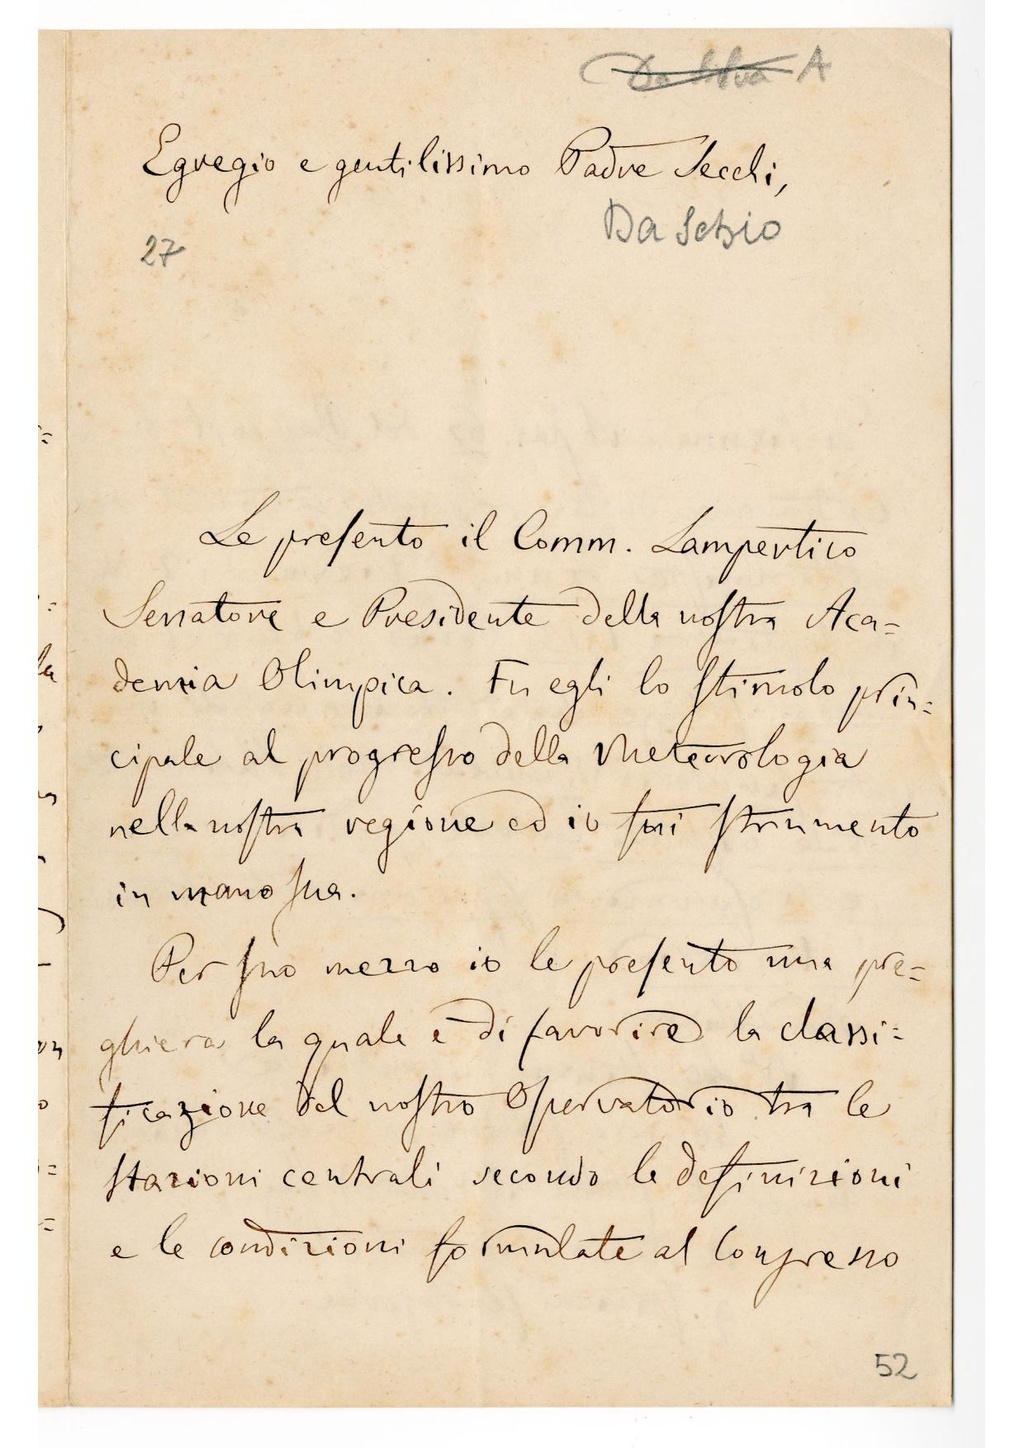 Da Silva A
Egregio e gentilissimo Padre Secchi,
Da Schio
27
Le presento il Comm. Lampertico
Senatore e Presidente della nostra Aca=
demia Olimpica. Fu egli lo stimolo prin=
cipale al progresso della Meteorologia
nella nostra regione ed io fui strumento
in mano sua.
Per suo mezzo io le presento una pre=
ghiera la quale è di favorire la classi=
ficazione del nostro Osservatorio tra le
stazioni centrali secondo le definizioni
e le condizioni formulate al Congresso
52